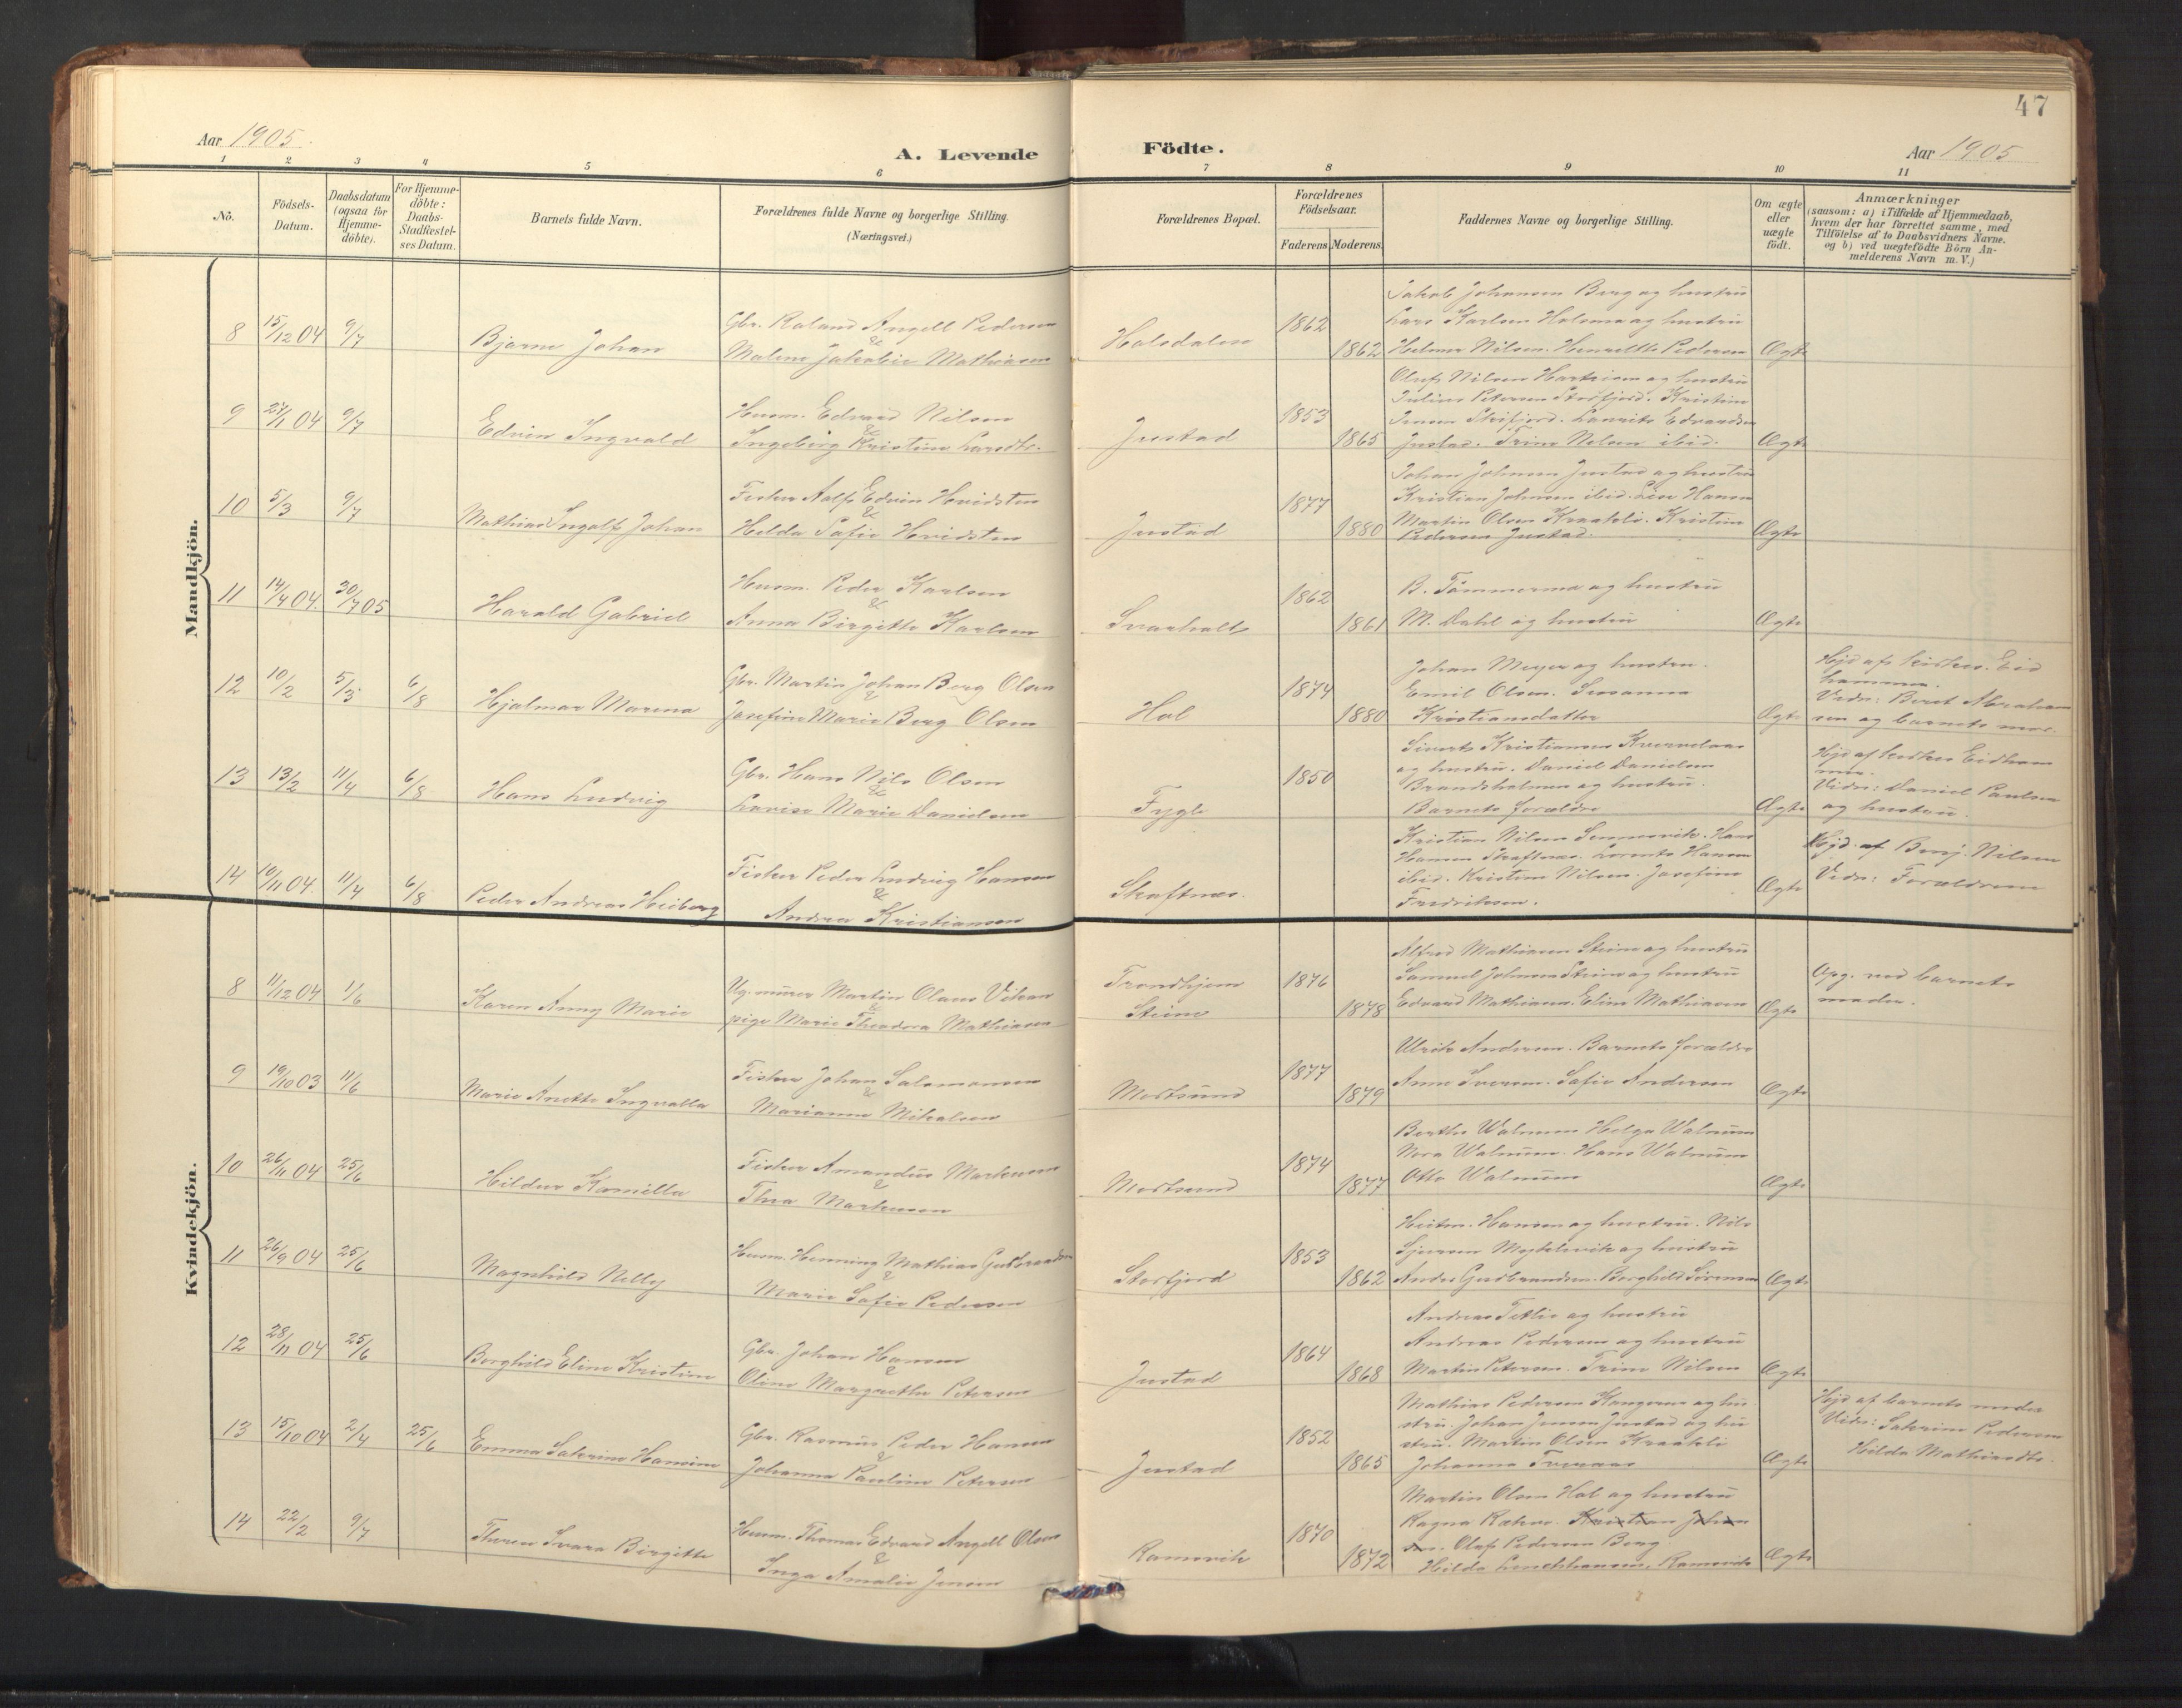 47
Aar 1905.
A. Levende
Födte.
Aar 1905
1 2 3 4 5 6 7 8 9 10 11
No.
Födsels-
Datum.
Daabsdatum
(ogsaa for
Hjemme-
döbte).
For Hjemme-
döbte:
Daabs-
Stadfestel-
ses Datum.
Barnets fulde Navn.
Forældrenes fulde Navne og borgerlige Stilling.
(Næringsvei.)
Forældrenes Bopæl.
Forældrenes
Födselsaar.
Faderens Moderens.
Faddernes Navne og borgerlige Stilling.
Om ægte
eller
uægte
födt.
Anmærkninger
(saasom: a) i Tilfælde af Hjemmedaab,
hvem der har forrettet samme, med
Tilföielse af to Daabsvidners Navne.
og b) ved uægtefödte Börn An-
melderens Navn m. V.)
Mandkjön.
8 15/12 04 9/7
Bjarne Johan
Gbr. Roland Angell Pedersen
&
Malene Jakobie Mathiasen
Holsdalen
1862
1862
Jakob Johansen Berg og hustru
Lars Karlsen Holsmo og hustru
Helmer Nilsen. Henrikke Pedersen
Ægte
9 27/1 04 9/7
Edvin Ingvald
Husm. Edvard Nilsen
&
Ingeborg Kristine Larsdtr.
Justad
1853
1865
Oluf Nilsen Hartviksen og hustru
Julius Petersen Storfjord. Kristine
Jensen Storfjord. Laurits Edvardsen
Justad. Trine Nilsen ibid.
Ægte
10 5/3 9/7
Mathias Ingolf Johan
Fisker Adolf Edvin Hvidsten
&
Hilda Sofie Hvidsten
Justad
1877
1880
Johan Johnsen Justad og hustru
Kristian Johnsen ibid. Lise Hansen
Martin Olsen Kraakli. Kristine
Pedersen Justad.
Ægte
11 14/4 04. 30/7 05
Harald Gabriel
Husm. Peder Karlsen
&
Anna Birgitte Karlsen
Svarholt
1862
1861
B. Tömmermo og hustru
M. Dahl og hustru
Ægte
12 10/2 5/3 6/8
Hjalmar Marena
Gbr. Martin Johan Berg Olsen
&
Josefine Marie Berg Olsen
Hol
1874
1880
Johan Meyer og hustru.
Emil Olsen. Susanna
Kristiansdatter
Ægte
Hjd af kirkes. Eid
hammer.
Vidn: Beret Abraham
sen og barnets mor.
13 13/2 11/4 6/8
Hans Ludvig
Gbr. Hans Nils Olsen
&
Lovise Marie Danielsen
Fygle
1850
Sivert Kristiansen Kvervelaas
og hustru. Daniel Danielsen
Brandsholmen og hustru.
Barnets forældre
Ægte
Hjd af kirkes Eidham
mer.
Vidn: Daniel Paulsen
og hustru.
14 10/11 04. 11/4 6/8
Peder Andreas Heiberg
Fisker Peder Ludvig Hansen
&
Andrea Kristiansen
Skaftnes.
Kristian Nilsen Sennesvik. Hans
Hansen Skaftnes. Lorents Hansen
ibid. Kristine Nilsen. Josefine
Fredriksen.
Ægte
Hjd. af Benj. Nilsen
Vidn: Forældrene
Kvindekjön.
8 11/12 04 1/6
Karen Anny Marie
Ug. murer Martin Olaus Vikan
&
pige Marie Theodora Mathiasen
Trondhjem
Steine
1876
1878
Alfred Mathiasen Steine og hustru
Samuel Johnsen Steine og hustru
Edvard Mathiasen. Eline Mathiasen
Ægte
Opg. ved barnets
moder.
9 19/10 03 11/6
Marie Anette Ingvalla
Fisker Johan Salomonsen
&
Marianne Mikalsen
Mortsund
1877
1879
Ulrik Andersen. Barnets forældre
Anne Iversen. Sofie Andersen
Ægte
10 26/11 04 25/6
Hildur Kamilla
Fisker Amandus Markussen
&
Thea Markussen
Mortsund
1874
1877
Berthe Walnum Helga Walnum
Nora Walnum. Hans Walnum
Otto Walnum
Ægte
11 26/9 04 25/6
Magnhild Nelly
Husm. Henning Mathias Gudbrandsen
&
Marie Sofie Pedersen
Storfjord
1853
1862
Heitm. Hansen og hustru. Nils
Sjursen Myklevik og hustru
Andor Gudbrandsen. Borghild Sörensen
Ægte
12 28/11 04 25/6
Borghild Eline Kristine
Gbr. Johan Hansen
&
Oline Margrethe Petersen
Justad
1864
1868
Andreas Tetlie og hustru
Andreas Pedersen og hustru
Martin Petersen. Trine Nilsen
Ægte
13 15/10 04 2/4 25/6
Emma Saterine Hansine
Gbr. Rasmus Peder Hansen
&
Johanna Pauline Petersen
Justad
1852
1865
Mathias Pedersen Kangerur og hu
stru. Johan Jensen Justad og hu
stru. Martin Olsen Kraakli
Johanna Tveraas
Ægte
Hjd af barnets moder
Vidn: Saterine Pedersen
Hilda Mathiasdtr.
14 22/2 9/7
Theren Svara Birgitte
Husm. Thomas Edvard Angell Olsen
&
Inga Amalie Jensen
Ramsvik
1870
1872
Martin Olsen Hol og hustru
Ragna Rækve. Kristian Johan
sen. Oluf Pedersen Berg.
Hilda Lorchhausen, Ramsvik
Ægte